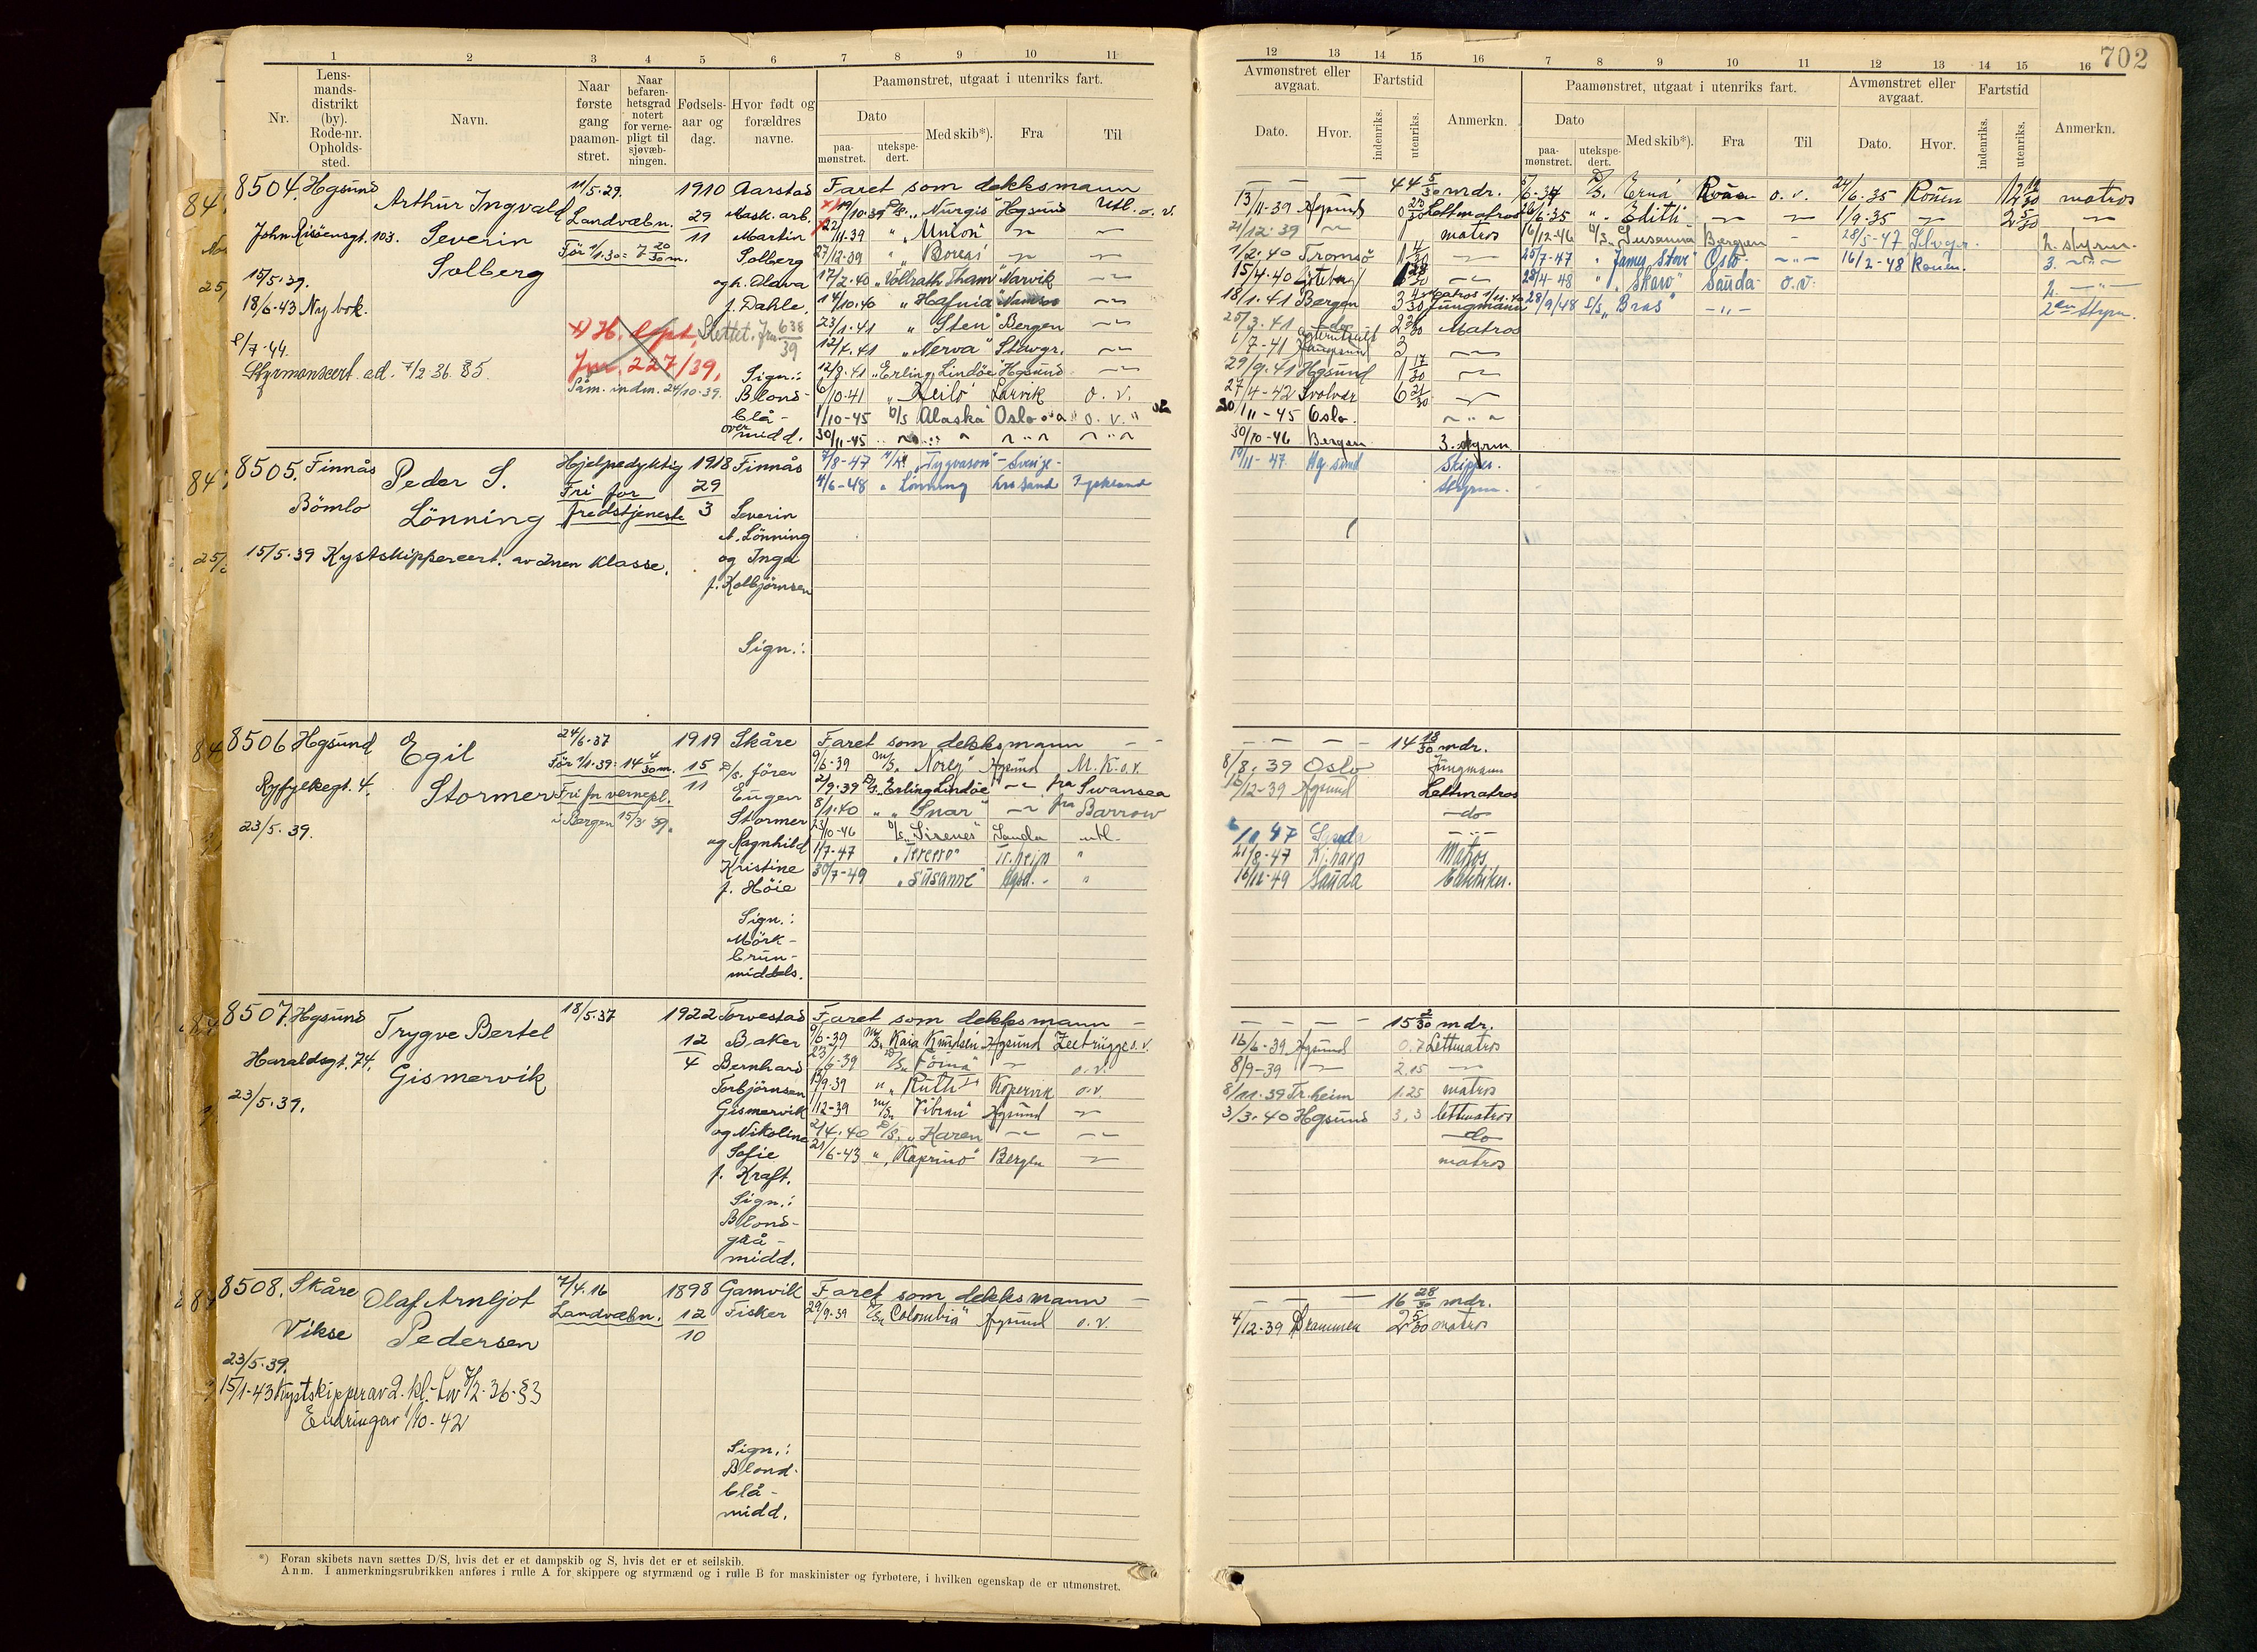 702
1 2 3 4 5 6 7 8 9 10 11
12 13 14 15 16 7 8 9 10 11 12 13 14 15 16
Nr.
Lens-
mands-
distrikt
(by).
Rode-nr.
Opholds-
sted.
Navn.
Naar
første
gang
paamøn-
stret.
Naar
befaren-
hetsgrad
notert
for verne-
pligt til
sjøvæb-
ningen.
Fødsels-
aar og
dag.
Hvor født og
forældres
navne.
Paamønstret, utgaat i utenriks fart.
Dato
paa-
mønstret.
utekspe-
dert.
Med skib*).
Fra
Til
Avmønstret eller
avgaat.
Dato.
Hvor.
Fartstid
indenriks.
utenriks.
Anmerkn.
Paamønstret, utgaat i utenriks fart.
Dato
paa-
mønstret.
utekspe-
dert.
Med skib*).
Fra
Til
Avmønstret eller
avgaat.
Dato.
Hvor.
Fartstid
indenriks.
utenriks.
Anmerkn.
8504. Hgsund
John Risöensgt. 103.
15/5.39.
18/6-43 Ny bok.
8/7-44.
Styrmannscert. ad. 7/2 36. §5.
Arthur Ingvald
Severin
Solberg
11/5.29.
Landvæbn.
Før 1/1.30= 7 20/30 m.
1910
29
11
Aarstad
Mask. arb.
Martin
Solberg
og h. Olava
f. Dahle.
Slettet. Jnr 638/39
Jnr. 227/39.
Påm. indm. 24/10.39.
Sign.:
Blond-
blå-
over
midd.
Faret som dekksmann 44 5/30 mdr.
19/10-39 D/S. "Nurgis" Hgsund Utl. o. v. 13/11-39 Hgsund 0 23/30 Lettmatros
22/11.39 " "Union" 21/12-39 1 matros
27/12-39 " "Boreas" 1/2.40 Tromsö 1 4/30
17/2.40 "Vollrath Tham" Narvik 15/4-40 Göteborg 1 28/30
14/10.40 " "Hafnia" 18/1.41 Bergen 3 4/30
23/1.41 " "Sten" Bergen 25/3.41 2 2/30 Matros
12/4.41 "Nerva" Stavgr. 1/7-41 Haugesund 3
12/8.41 "Erling Lindöe" Hgsund. 29/9.41 Hgsund 1 17/30
6/10-41 " Heilo" Larvik o. v. 27/4-42 Svolvær 6 21/30
1/10-45 D/S Alaska" Oslo o. v. 30/11-45 Oslo.
30/11-45 30/10-46 Bergen 3. styrm
6-34 D/S. Erna" Rouen o. v. 24/6.35 Rouen matros
26/6.35 " Edith" 1/9.35 2 5/30
16/12-46 D/S "Susanna" Bergen 28/5-47 Stvgr. 2. styrm.
25/7-47 " James Stove" Oslo 16/2-48 Rouen. 3.
28/4-48 " "Skaw" Sauda o.v. 2.
28/9/48 S/S "Bras" 2en Styrm.
8505. Finnås
Bömlo
Peder S.
Lönning
Hjelpedyktig
Fri for
fredstjeneste
1918
29
3
Finnås
Severin
A. Lönning
og Inga
f. Kolbjörnsen
Sign.:
15/5.39 Kystskippercert. av 2nen klasse.
7/8-47 M/K "Trygvason" - Sverige - 19/11-47 Hg.sund Skipper.
4/6-48 " Lönning Krs sand Tyskland Styrm.
8506 Hgsund
Ryfylkegt. 4.
23/5.39.
Egil
Stormer
24/6.37
Før 1/1.39: 14 4/30 m.
Fri for vernepl.
i Bergen 15/3 39.
1919
15
11
Skåre
D/S. förer
Eugen
Stormer
og Ragnhild
Kristine
f. Höie
Sign.:
Mörk-
brun-
middels.
Faret som dekksmann 14 13/30 mdr.
9/6-39 M/S. "Norej" Hgsund M.K.o.v. 8/8.39 Oslo Jungmann
2/9.39 D/S "Erling Lindöe" fra Swansea 16/12-39 Hgsund Lettmatros
8/1.40 " "Snar" fra Barrow do
23/10-46 D/S. "Sirenes" Sauda utl. 47 Sauda
1/7-47 "Tercero" Tr.heim " 21/8-47 Kj.havn Matros
30/7-49 "Susanne" Hgsd. " 16/12-49 Sauda
8507. Hgsund
Haraldsgt. 74.
23/5.39.
Trygve Bertel
Gismervik
18/5.37
1922
12
4
Torvestad
Baker
Bernhard
Torbjörnsen
Gismervik
og Nikoline
Sofie
f. Kraft.
Sign.:
Blond-
grå-
midd.
Faret som dekksmann 15 2/30 mdr.
9/6-39 M/S. Kaia Knudsen Hgsund Zeebrügge o.v. 16/6-39 Hgsund 0.7 Lettmatros
23/6-39 o.v. 8/9-39 2.15
13/9.39 " "Ruth" Kopervik o.v. 8/11.39 Tr.heim 1.25 matros
1/12-39 M/S. Vibran" Hgsund 3/3.40 Hgsund 3,3 lettmatros
2/4.40 D/S. "Karen do
21/6-43 " "Kaprino" Bergen matros
8508. Skåre
Vikse
23/5.39.
15/1-43 Kystskipper av 2. kl. - Lov 7/2-36-§3
Endring av 1/10-42
Olaf Arnljot
Pedersen
7/4.16
Landvæbn.
1898
12
10
Gamvik
Fisker
Sign.:
Blond-
blå-
midd.
Faret som dekksmann 16 28/30 mdr.
29/9-39 D/S. Colombia" Hgsund o.v. 4/12-39 Drammen 2 5/30 matros
*) Foran skibets navn sættes D/S, hvis det er et dampskib og S, hvis det er et seilskib.
Anm. I anmerkningsrubrikken anføres i rulle A for skippere og styrmænd og i rulle B for maskinister og fyrbøtere, i hvilken egenskap de er utmønstret.